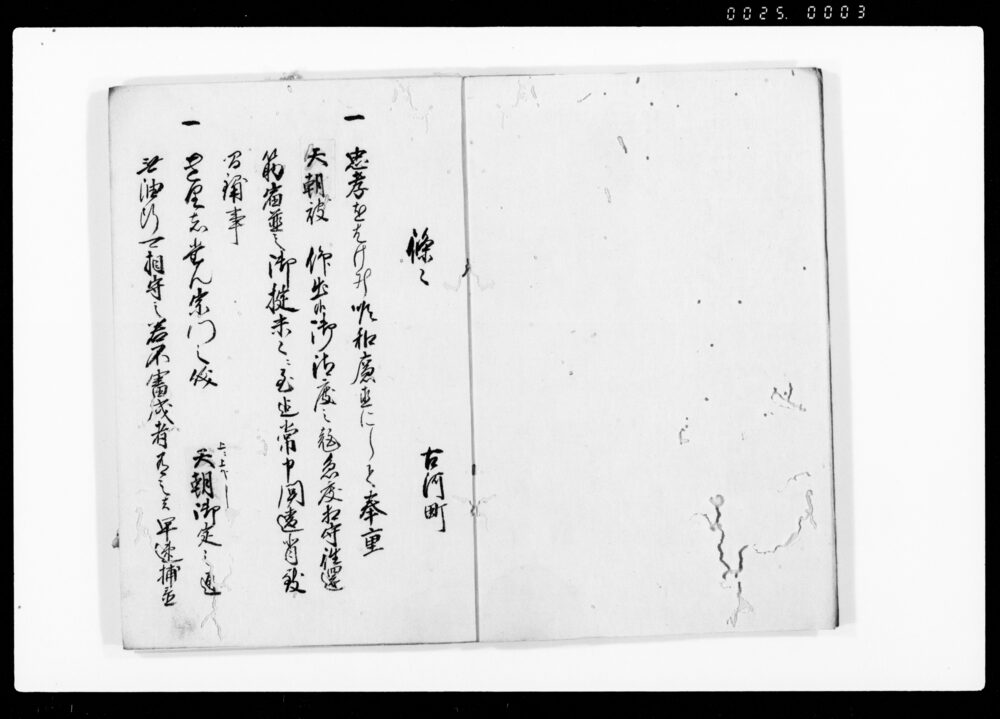 0025.0003
條々
古河町
一 忠孝をはけみ 順和廉直にして 奉重
天朝被 仰出候御法度之趣急度相守往還
筋宿並之御掟未々ニ至迄常申聞違背致
間鋪事
一 きりしたん宗門之儀 天朝御定之通
無油断可相守之若不審成者有之は早速捕置